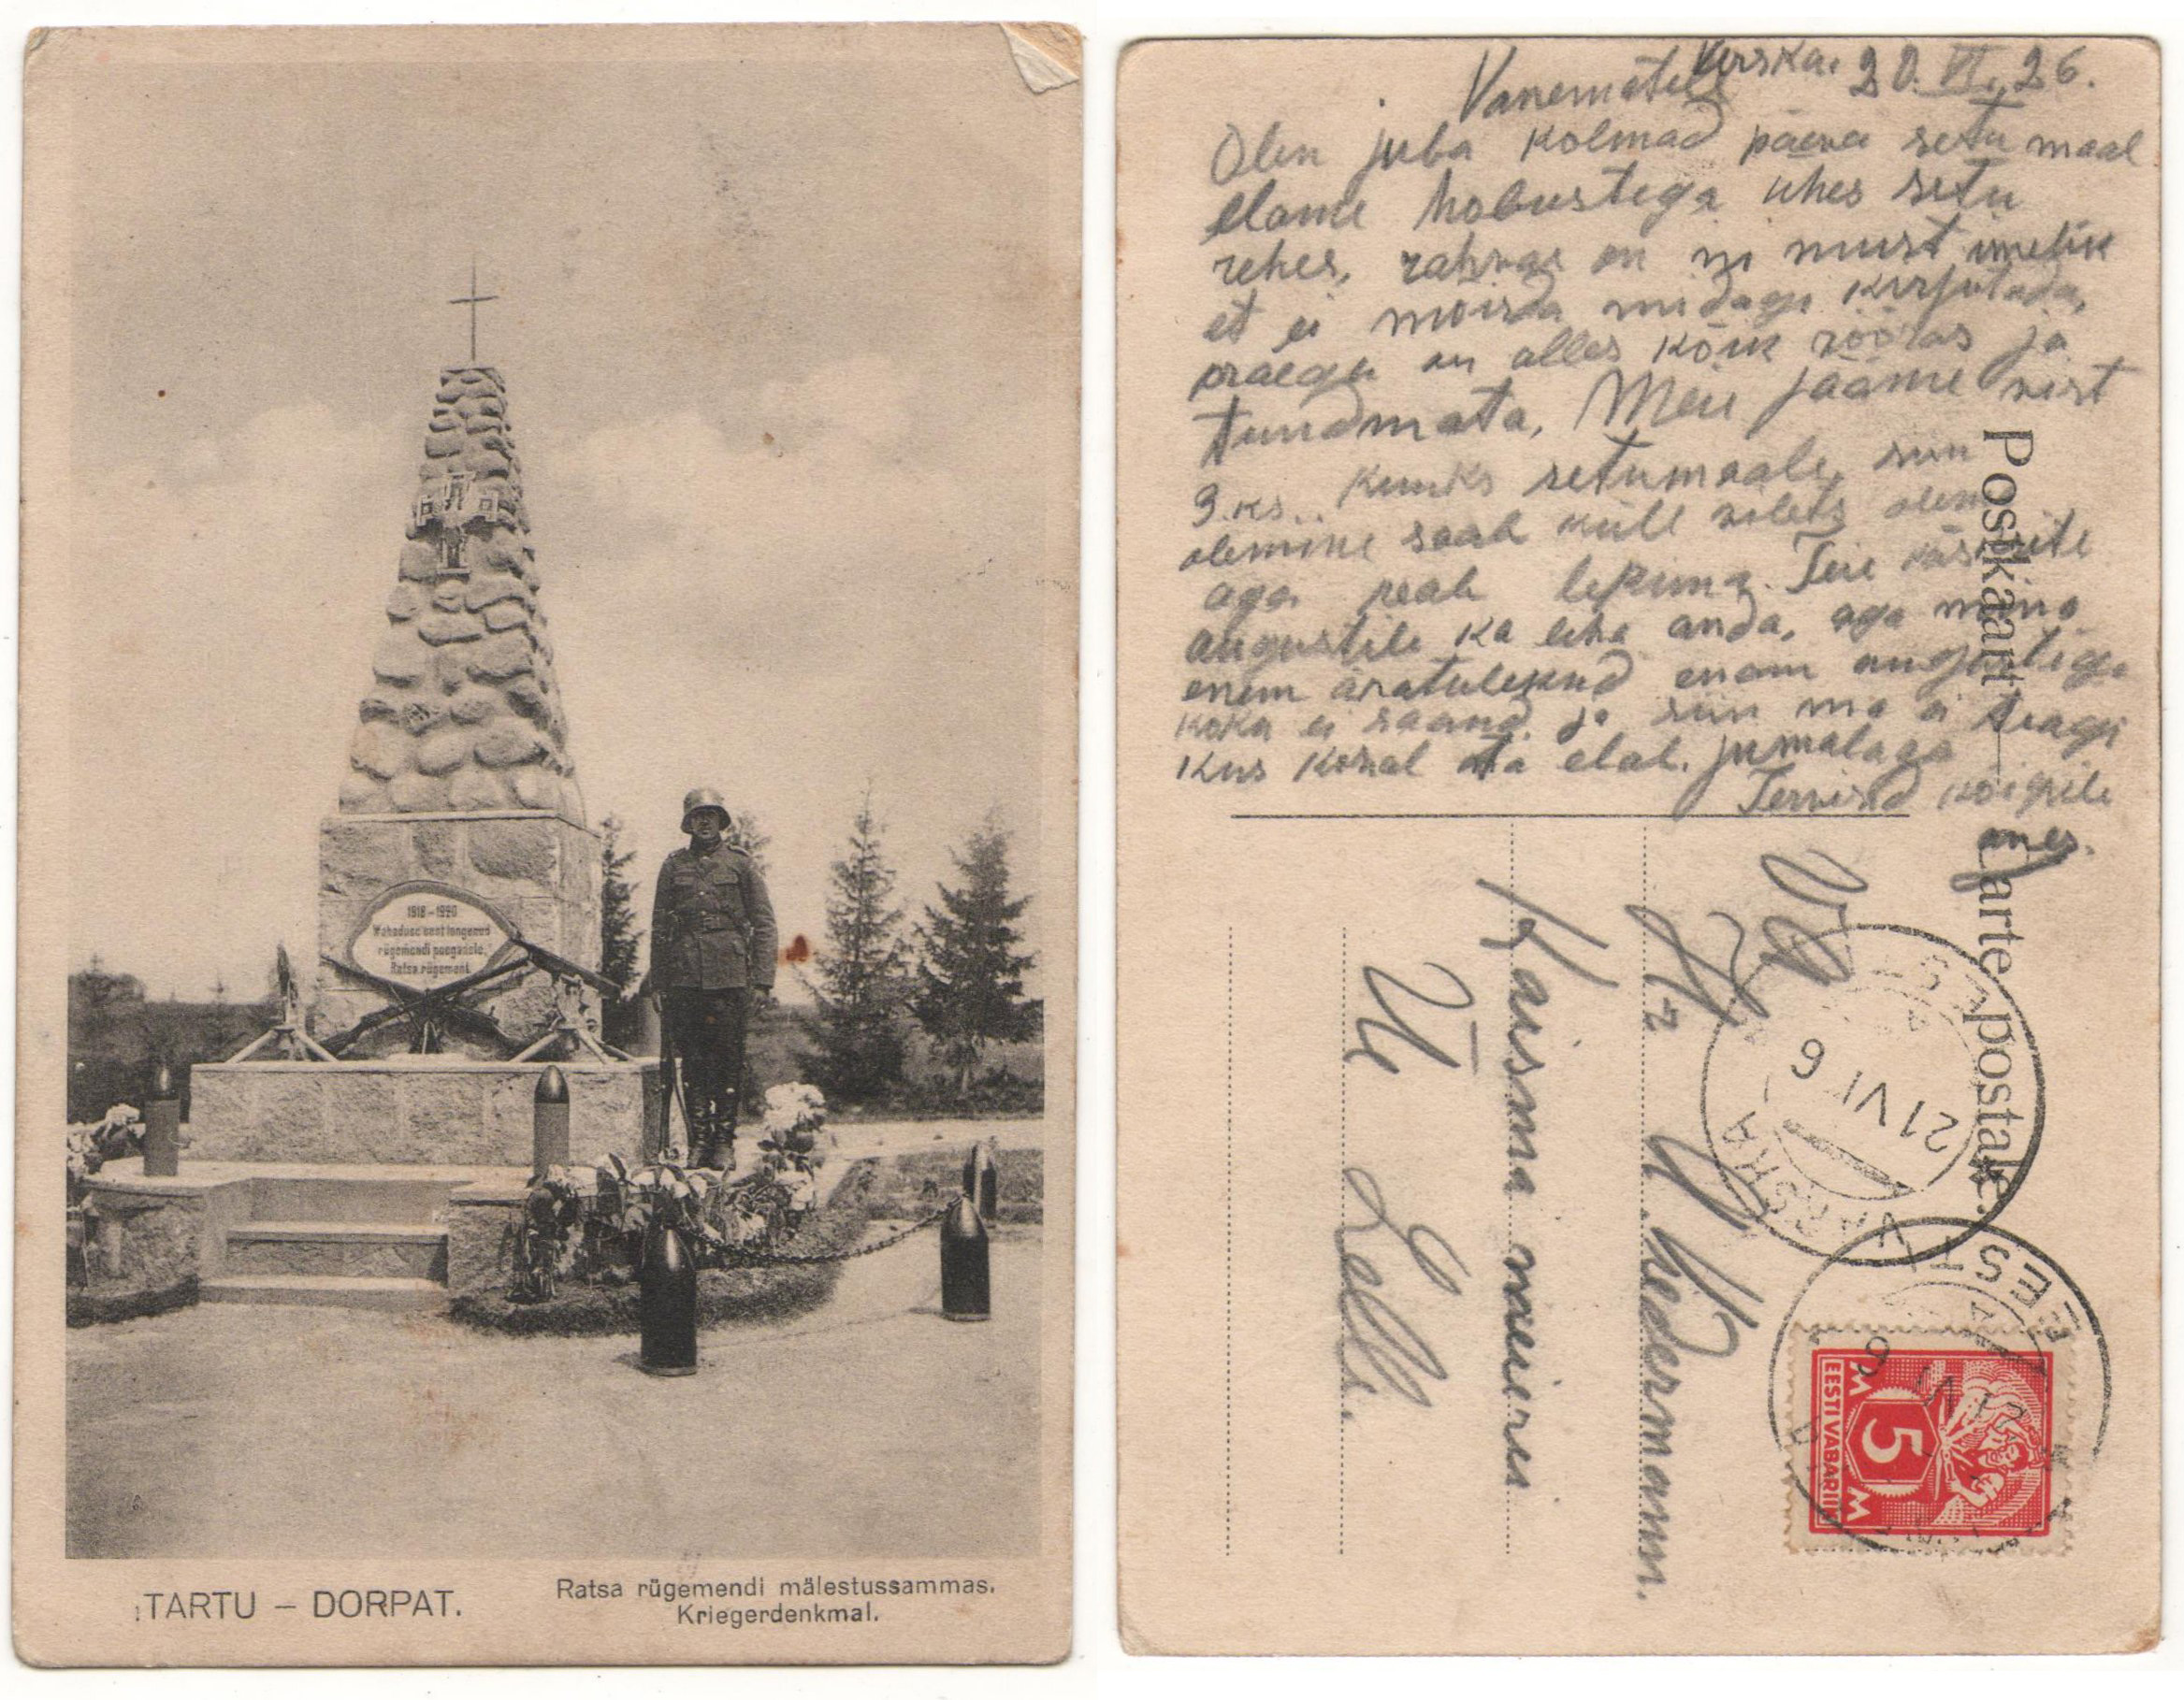 1918-1920
Wabaduse eest langenud
rügemendi poegadele.
Ratsa rügement
TARTU – DORPAT.
Ratsa rügemendi mälestussammas.
Kriegerdenkmal.
Verska. 20. VI. 26.
Vanematele
Olen juba kolmad päeva setu maal
elame hobustega ühes setu
rehes, rahvas on ni must imelik
et ei mõista midagi kirjutada,
praegu on alles kõik võõras ja
tundmata, Meie jääme vist
3. ks. kuuks setumaale, siin
olemine saab küll vilets olema
aga peab leppima. Teie käsisite
augustile ka leha anda, aga mina
enem äratulekud enam augustiga
koku ei saand. ja siin ma ei teagi
kus kohal ta elab. jumalaga
Tervisid kõigile
Postkaart — Carte postale.
Hr
Vedermann.
Kaisma meierei
Üle Lelle.
EESTI
VÄRSKA
21 VI 6
EESTI
21 VI 6
5
M M
EESTI VABARIIK